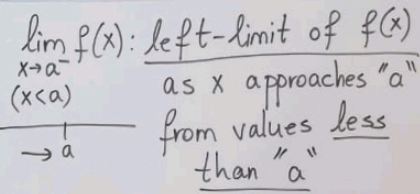 lim f(x): left-limit of f(x)
x→a⁻
(x<a)
as x approaches "a"
from values less
than "a"
→ a